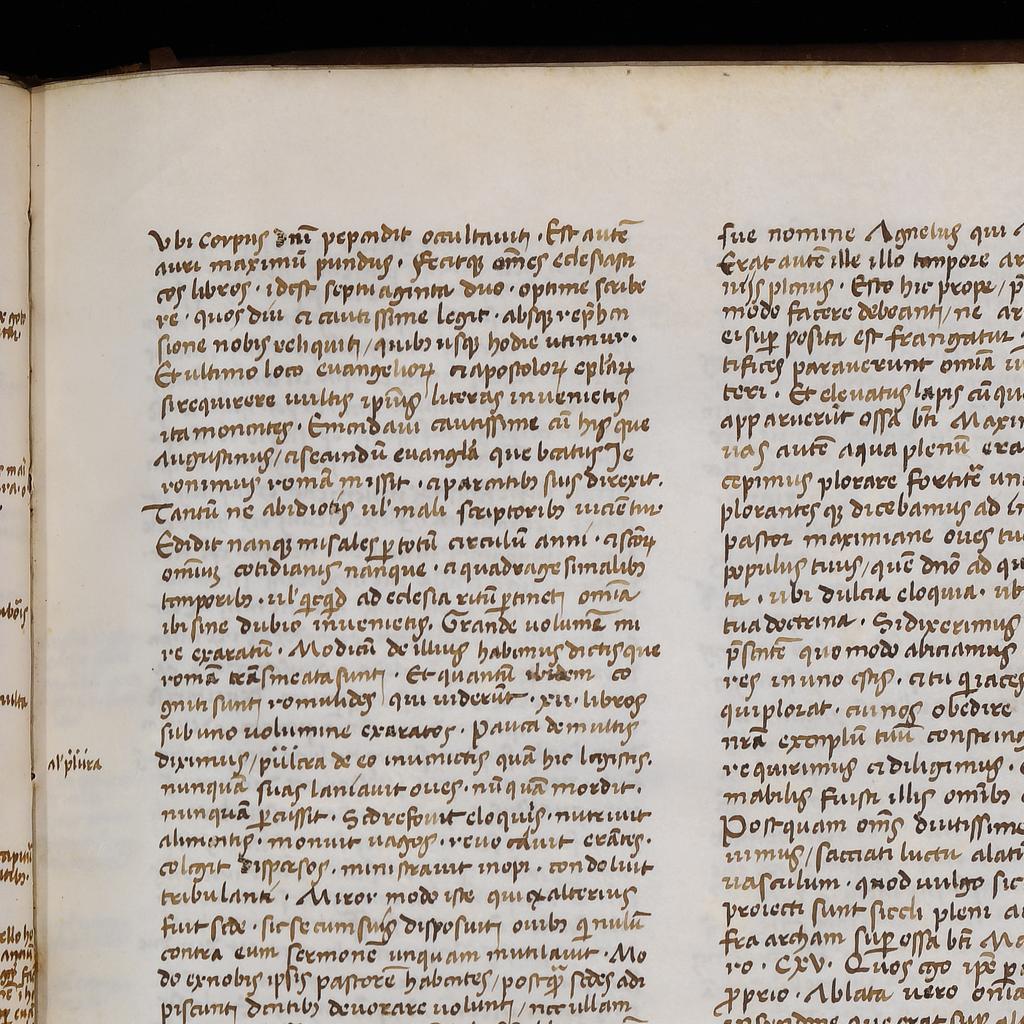 Vbi corpus dnī pependit occultauit. Est autē
auri maximū pundus. Fecitqȝ om̄es eclesiasti
cos libros. idest septuaginta duo. optime scribe
re. quos diu et cautissime legit. absqȝ rep̄hen
sione nobis reliquit, quibȝ usqȝ hodie utimur.
Et ultimo loco euangelioꝝ et apostoloꝝ ep̄laꝝ
si requirere uultis ip̄ius literas inuenietis
ita monentes. Emendaui cautissime cū his que
Augustinus, et secundū euangl̄ia que beatus Ie
ronimus romā missit. et parentibȝ suis direxit.
Tantū ne ab idiotis ul' mali scriptoribȝ uicientur
Edidit nanqȝ misales ꝑ totū circulū anni. et scōꝝ
omniū. cotidianis nanque. et quadragesimalibȝ
temporibȝ. ul' qcqd ad eclesia ritū ꝑtinet, omīa
ibi sine dubio inuenietis. Grande uolumē mi
re exaratū. Modicū de illius habuimus dictis que
romā trāsmeata sunt. Et quantū ibidem co
gniti sunt, romulides qui uiderūt. xii. libros
sub uno uolumine exaratos. Pauca de multis
diximus, de eo inuenietis quā hic legistis.
nunquā suas laniauit oues. nūquā mordit.
nunquā ꝑcussit. Sed refouit eloquiis. nutriuit
alimentis. monuit uagos. reuocauit erātes.
colegit dispersos. ministrauit inopi. condoluit
tribulanti. Miror modo iste qui ex alterius
fuit sede. sic se cum suis disposuit, ouibȝ q nulū
contra eum sermone unquam mutilauit. Mo
do ex nobis ipsis pastorē habentes, postꝗ̄ sedes adi
piscunt dentibȝ deuorare uolunt, nec ullam
al' plura
sue nomine Agnelus qui
Erat autē ille illo tempore ar
niis plenus. Esto hic prope,
modo facere debeant, ne ar
ei suꝑ posita est frangatur.
tifices parauerunt omīa
teri. Et eleuatus lapis cū
apparuerūt ossa bt̄i Maxi
uas autē aqua plenū era
cepimus plorare fortitē un
plorantesqȝ dicebamus ad
pastor maximiane oues tu
populus tuus, quē dn̄o ad
ta. ubi dulcia eloquia. ub
tua doctrina. Si dixerimus
p̄sentē quomodo abiciamus
res in uno estis. et tu q iaces
qui plorat. cuius obedire
nr̄a exemplū tuū constring
requirimus et diligimus.
mabilis fuisti illis omībȝ
Postquam om̄s diutissime
uimus, sacciati luctu alati
uasculum. quod uulgo sic
proiecti sunt siccli pleni
fra archam suꝑ ossa bt̄i Ma
ro. CXV. Quos ego ip̄e
ꝓprio. Ablata uero omīa